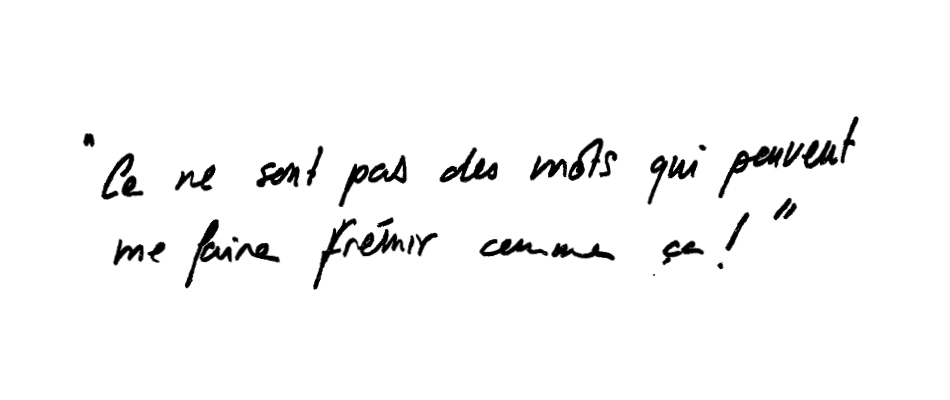 "Ce ne sont pas des mots qui peuvent
me faire frémir comme ça!"